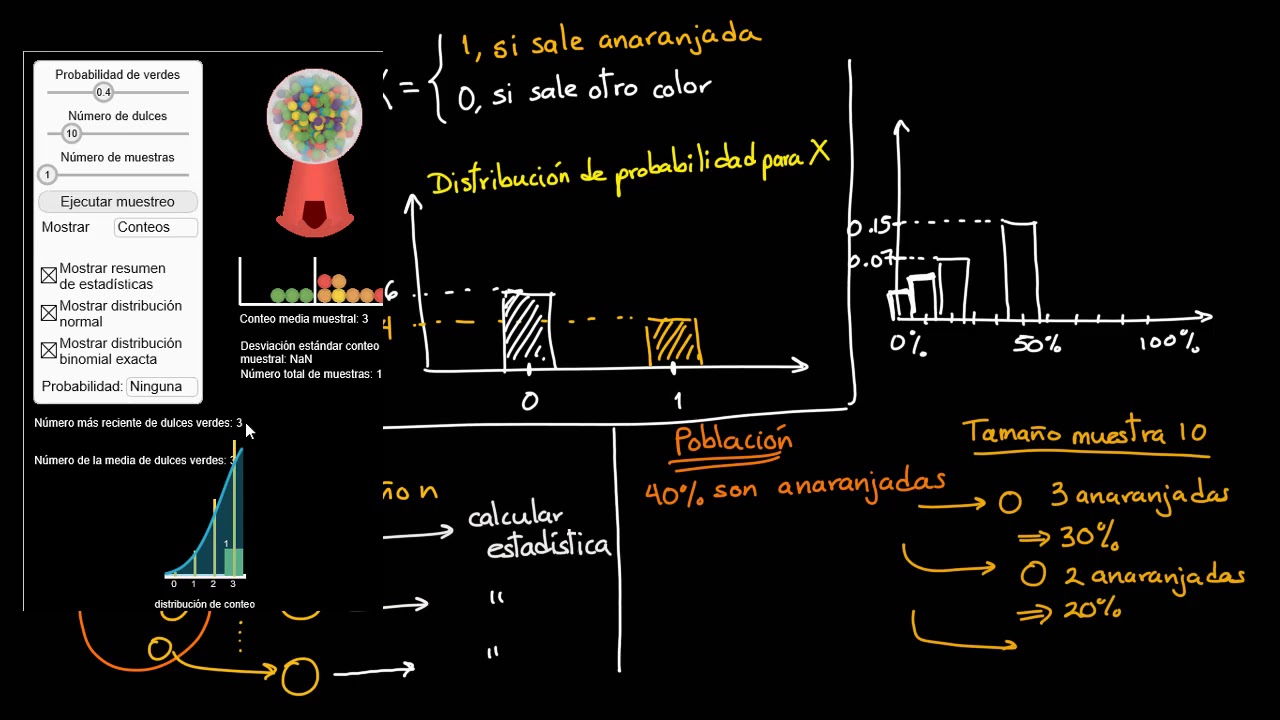 Probabilidad de verdes
0.4
Número de dulces
10
Número de muestras
1
Ejecutar muestreo
Mostrar Conteos
Mostrar resumen
de estadísticas
Mostrar distribución
normal
Mostrar distribución
binomial exacta
Probabilidad: Ninguna
Conteo media muestral: 3
Desviación estándar conteo
muestral: NaN
Número total de muestras: 1
Número más reciente de dulces verdes: 3
Número de la media de dulces verdes: 3
1
0 1 2 3
distribución de conteo
X = 1, si sale anaranjada
0, si sale otro color
Distribución de probabilidad para X
6
4
0 1
0.15
0.07
0% 50% 100%
ño n
calcular
estadística
"
"
Población
40% son anaranjadas
Tamaño muestra 10
3 anaranjadas
⇒ 30%
2 anaranjadas
⇒ 20%